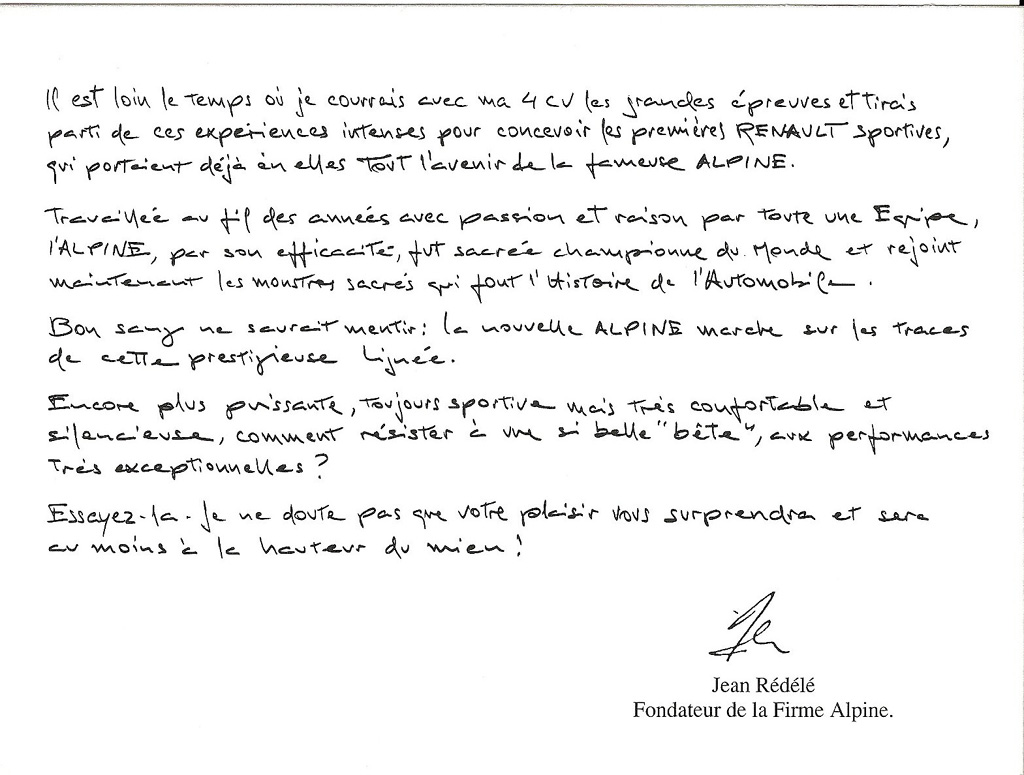 Il est loin le temps où je courrais avec ma 4 CV les grandes épreuves et tirais
parti de ces expériences intenses pour concevoir les premières RENAULT sportives,
qui portaient déjà en elles tout l'avenir de la fameuse ALPINE.
Travaillée au fil des années avec passion et raison par toute une Equipe,
l'ALPINE, par son efficacité, fut sacrée championne du Monde et rejoint
maintenant les monstres sacrés qui font l'Histoire de l'Automobile.
Bon sang ne saurait mentir : la nouvelle ALPINE marche sur les traces
de cette prestigieuse lignée.
Encore plus puissante, toujours sportive mais très confortable et
silencieuse, comment résister à une si belle "bête", aux performances
très exceptionnelles ?
Essayez-la. Je ne doute pas que votre plaisir vous surprendra et sera
au moins à la hauteur du mien !
Jean Rédélé
Fondateur de la Firme Alpine.